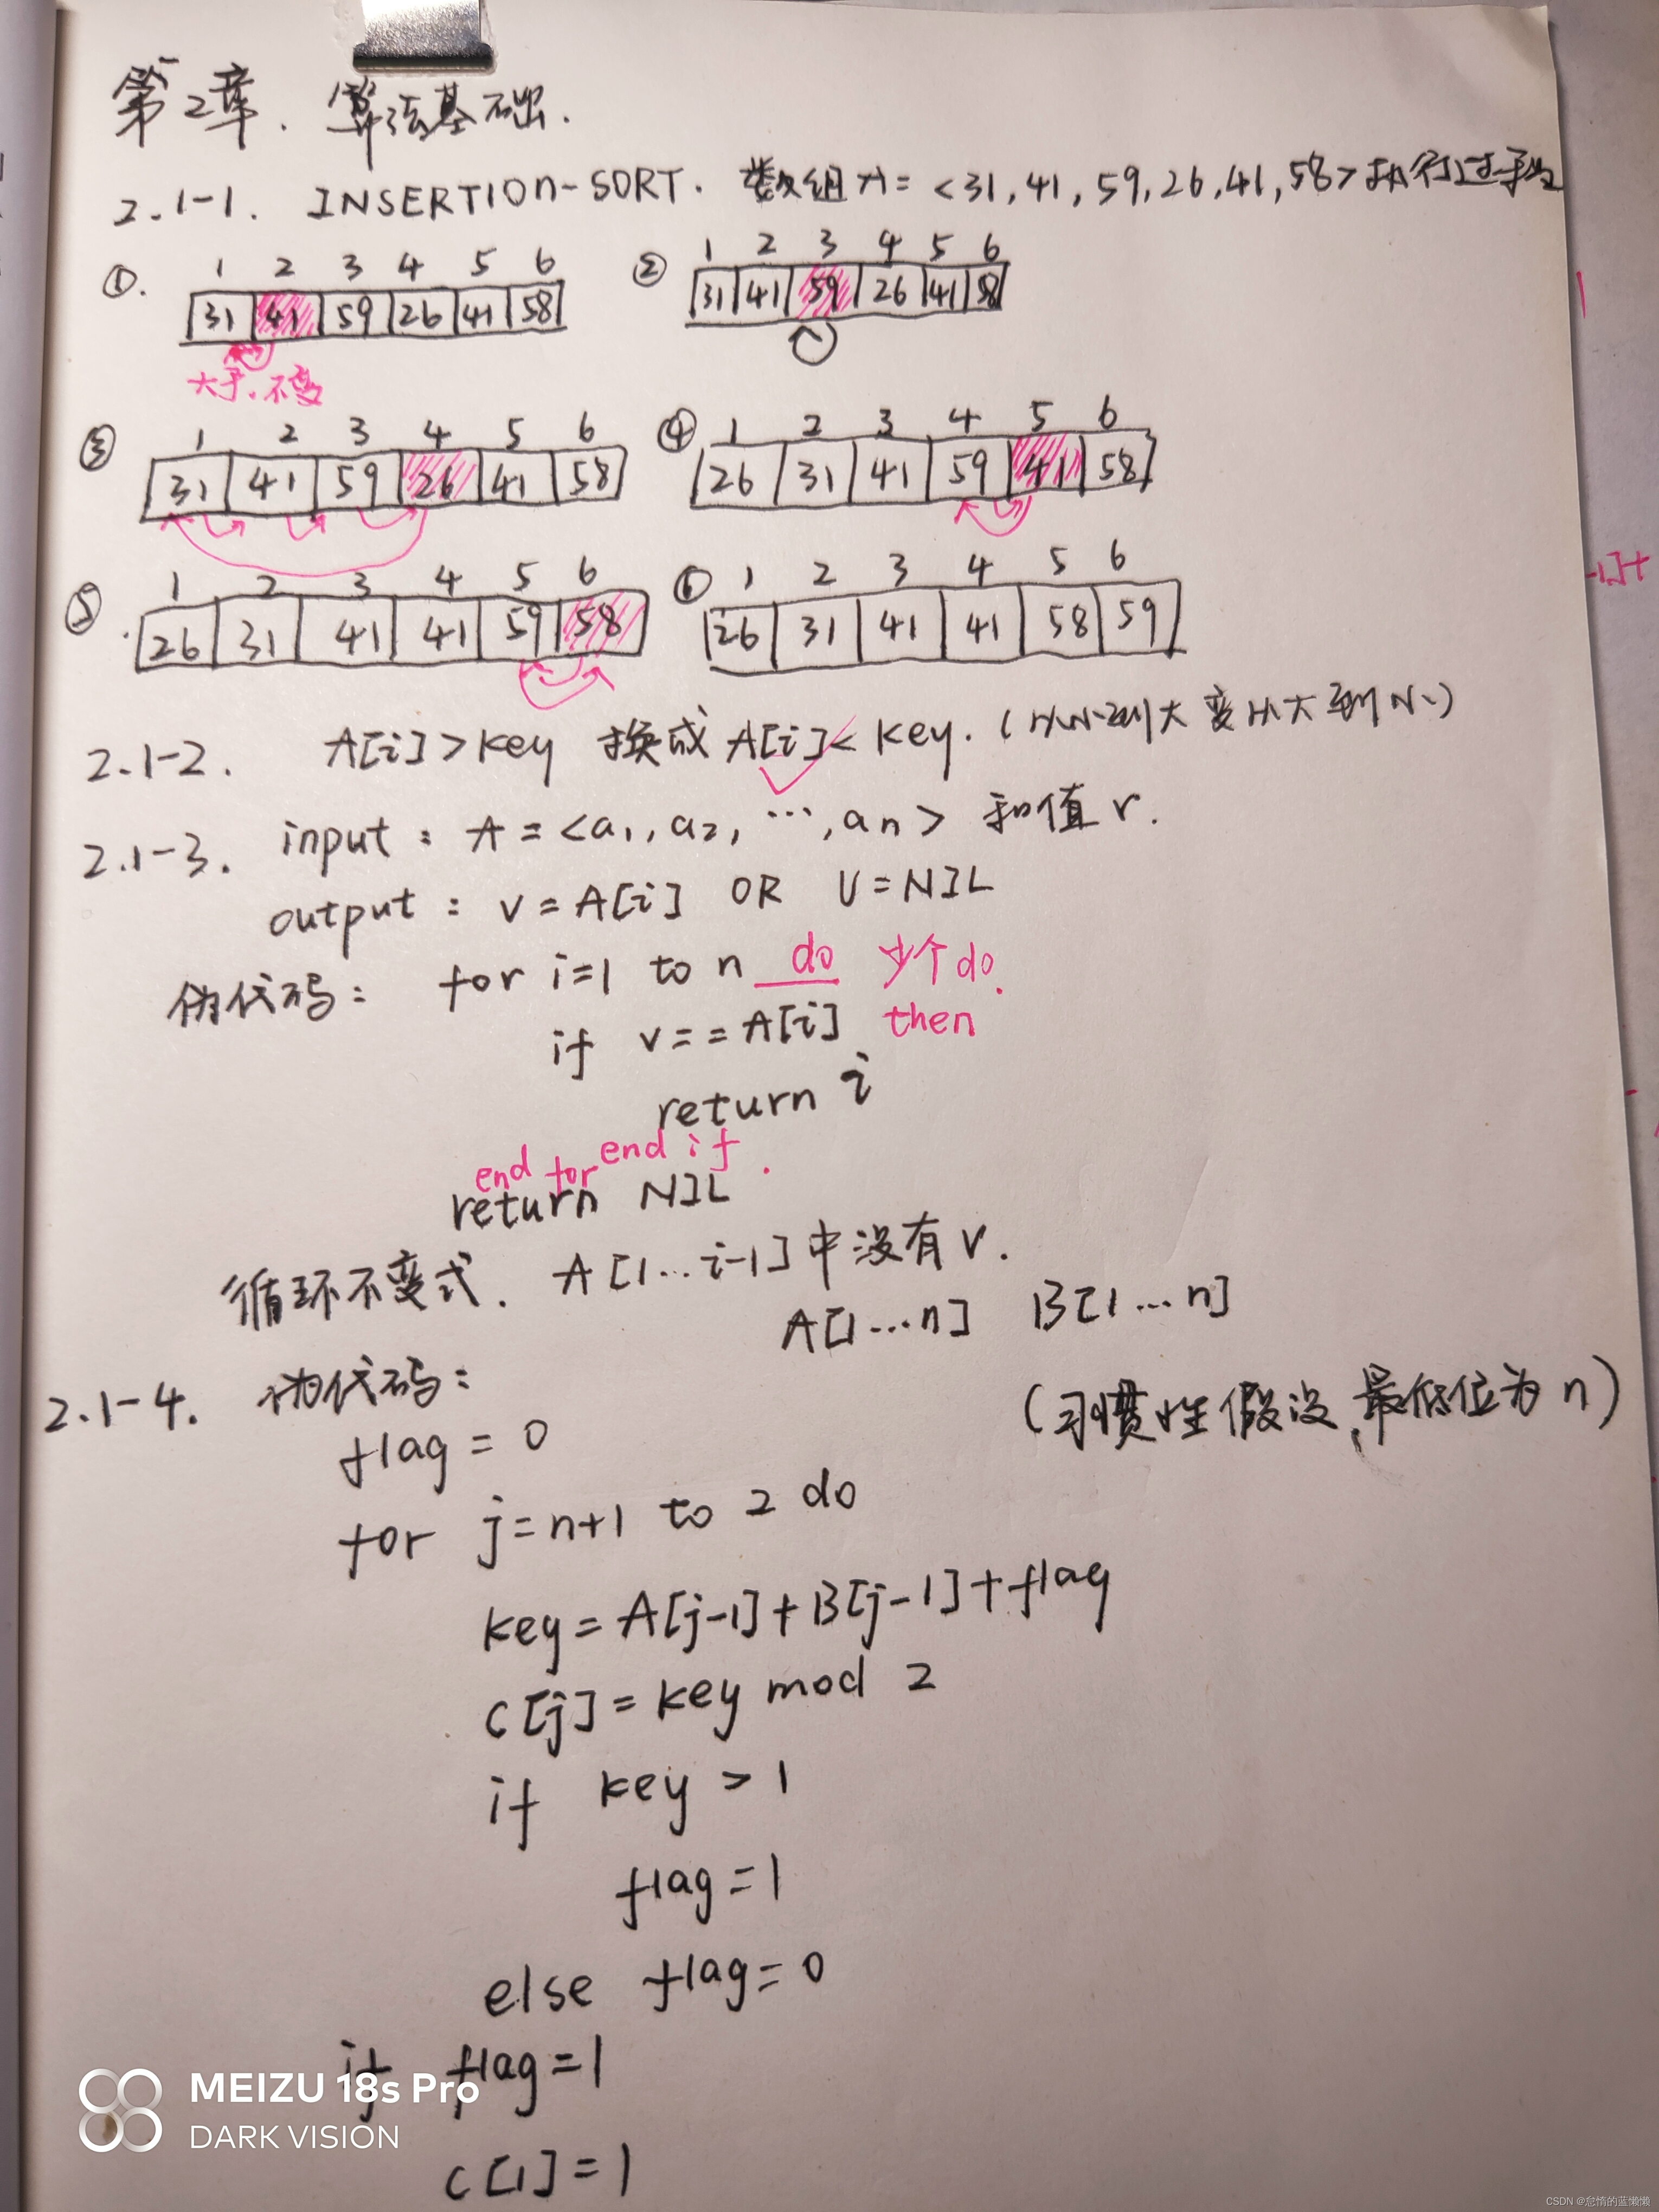 第2章. 算法基础.
2.1-1. INSERTION-SORT. 数组A=<31,41,59,26,41,58>执行过程
①. 1 2 3 4 5 6
31 41 59 26 41 58
大于.不变
② 1 2 3 4 5 6
31 41 59 26 41 58
③ 1 2 3 4 5 6
31 41 59 26 41 58
④ 1 2 3 4 5 6
26 31 41 59 41 58
⑤ 1 2 3 4 5 6
26 31 41 41 59 58
⑥ 1 2 3 4 5 6
26 31 41 41 58 59
2.1-2. A[i]>key 换成 A[i]<key. (从小到大变从大到小)
2.1-3. input: A=<a1,a2,…,an> 和值v.
output: v=A[i] OR v=NIL
伪代码: for i=1 to n do 少个do.
if v==A[i] then
return i
end for end if.
return NIL
循环不变式. A[1...i-1]中没有v.
A[1...n] B[1...n]
2.1-4. 伪代码: (习惯性假设,最低位为n)
flag=0
for j=n+1 to 2 do
key=A[j-1]+B[j-1]+flag
C[j]=key mod 2
if key>1
flag=1
else flag=0
if flag=1
C[1]=1
MEIZU 18s Pro
DARK VISION
CSDN @怠惰的蓝懒懒